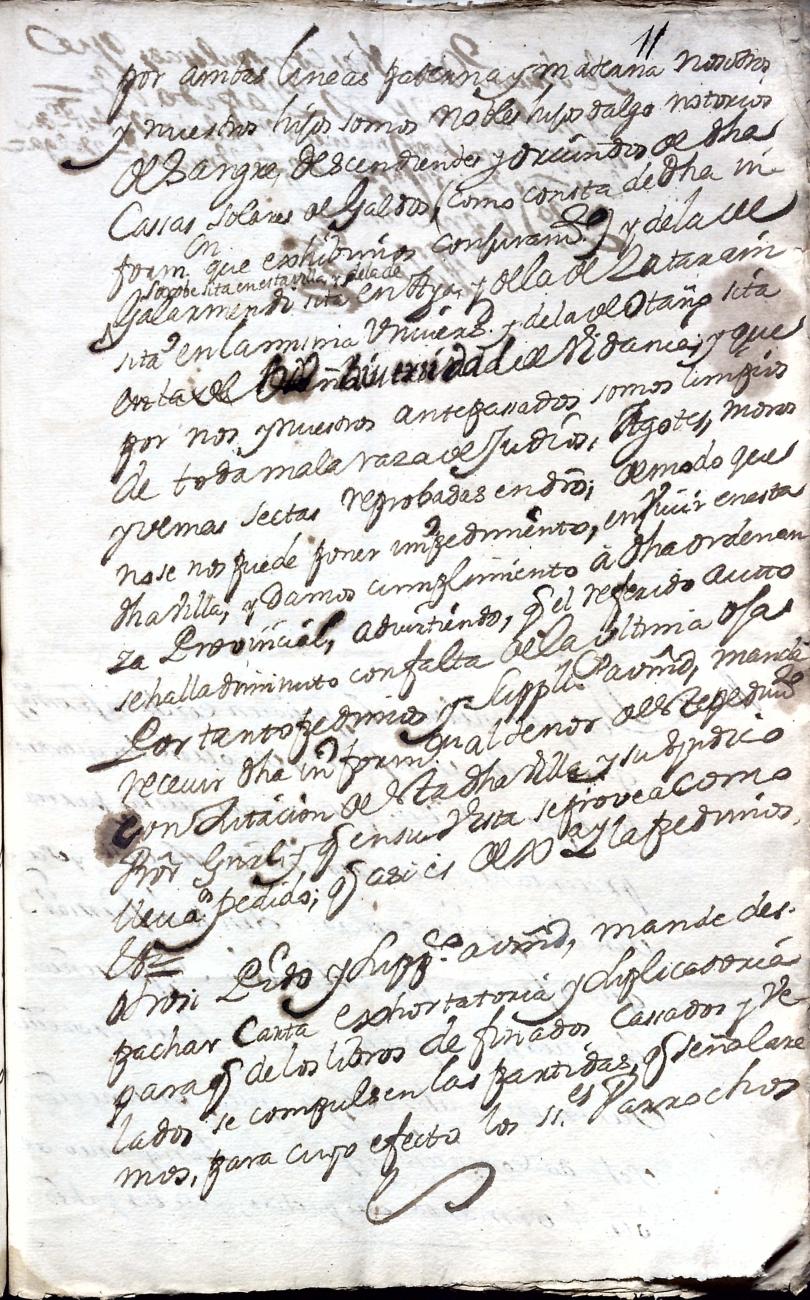 11
por ambas lineas paterna y materna nosotros
y nuestros hijos somos nobles hijosdalgo notorios
de Sangre, descendientes y oriundos de dhas
Cassas Solares de Galdos, como consta de dha in-
form.on que exhibimos con juram.to y de la de
Sorrobe sita en esta villa, y de la de
Galarmendi sita en Atga. y de la de Zatarain
sita en la misma Univers.d y de la de Otaño sita
en la de Vniversidad de Vidania, y que
por nos y nuestros antepassados somos limpios
de toda mala raza de Judios, Agotes, moros
y demas sectas reprobadas en dro; de modo que
no se nos puede poner impedimento, en vivir en esta
dha villa, y Damos cumplimiento à dha ordenan
za Provincial, advirtiendo, q el referido auto
se halla diminuto con falta de la ultima oja
Por tanto pedimos y supp.co a vmd, mande
recevir dha inform.on al tenor de este pedim.to
con Citacion de esta dha villa y su Sindico
Pror Gnral, y q en su vista se provea como
llevam.os pedido; q asi es de Just.a y la pedimos,
Otrosi Pido y supp.co a vmd, mande des-
pachar Carta exhortatoria y suplicatoria
para q de los libros de finados, Cassados y Ve
lados se compulsen las partidas, q señalare
mos, para cuyo efecto los ss.es Parrochos